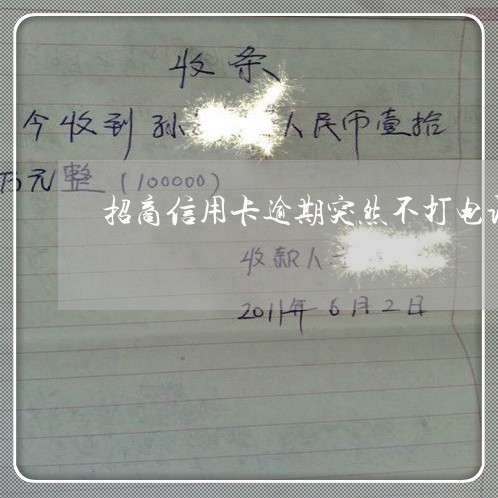 收条
今收到孙 人民币壹拾
万元整(100000)
招商信用卡逾期突然不打电
收款人
2011年6月2日